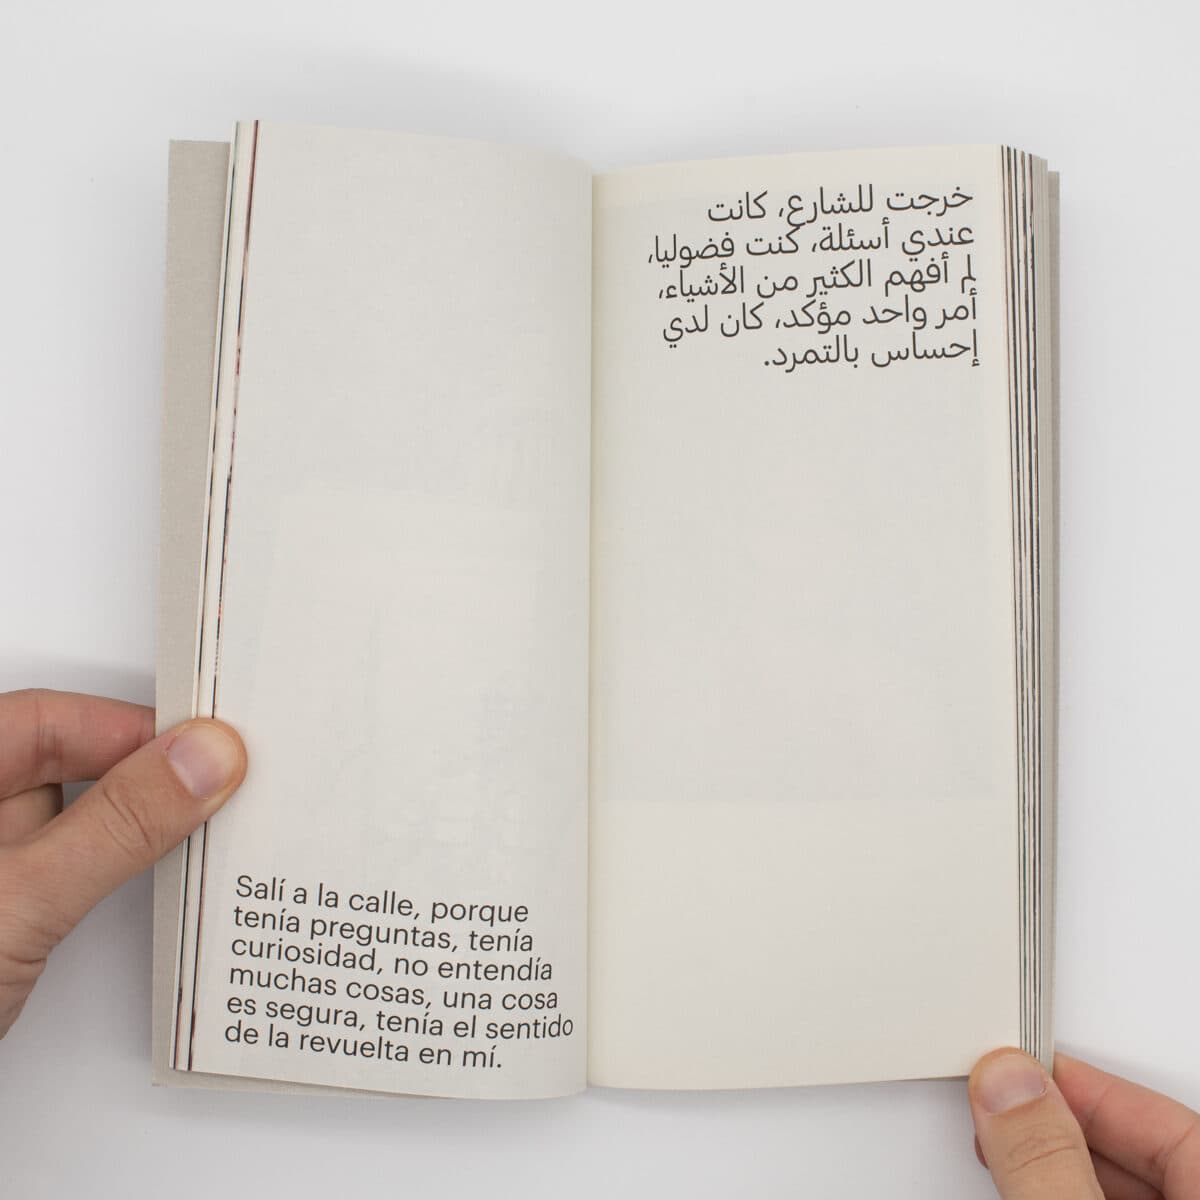 Salí a la calle, porque
tenía preguntas, tenía
curiosidad, no entendía
muchas cosas, una cosa
es segura, tenía el sentido
de la revuelta en mí.
خرجت للشارع، كانت
عندي أسئلة، كنت فضوليا،
لم أفهم الكثير من الأشياء،
أمر واحد مؤكد، كان لدي
إحساس بالتمرد.